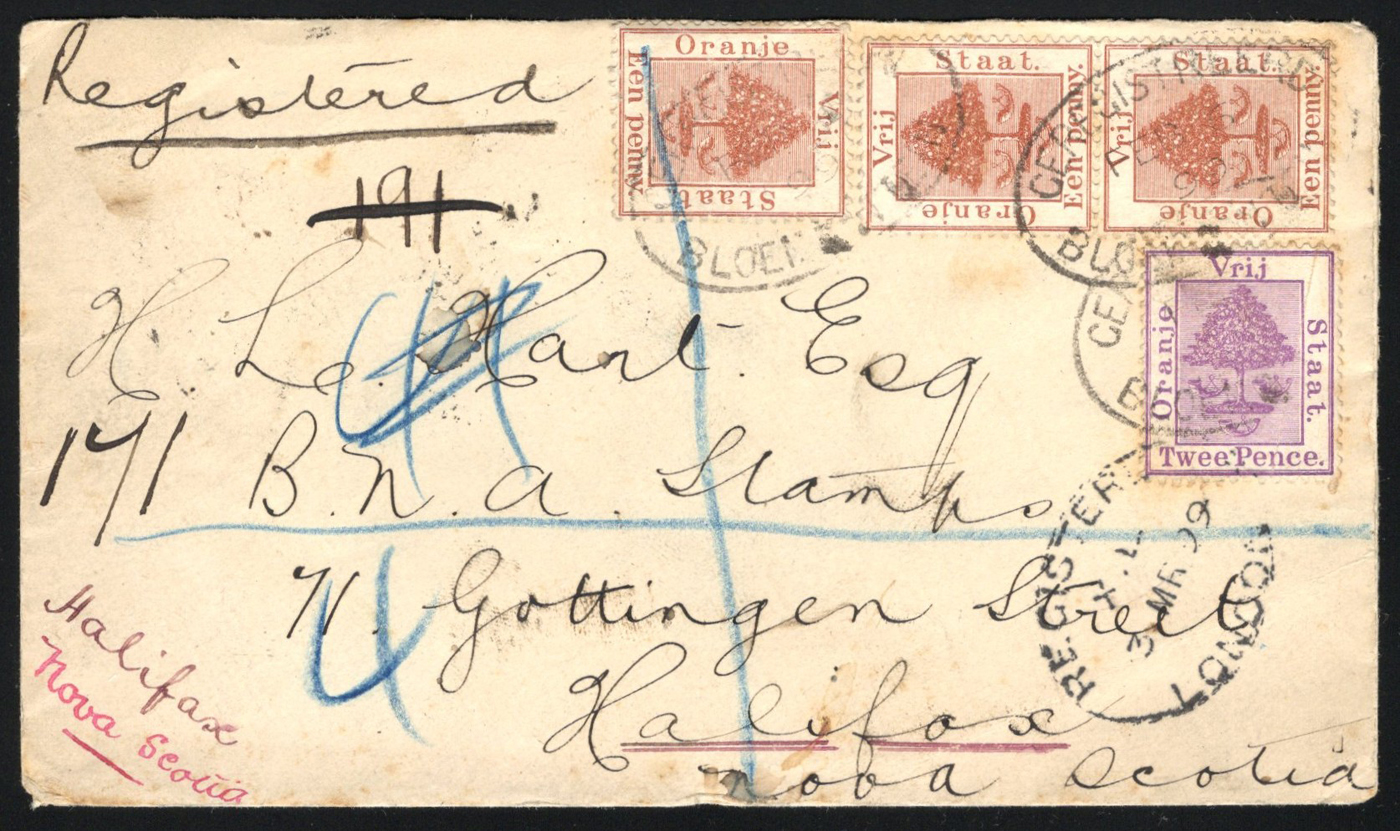 Registered
191
H. L. Hart Esq
171 B. N. A. Stamps
71. Gottingen Street
Halifax
Nova Scotia
Halifax
Nova Scotia
Oranje
Vrij
Staat
Een penny.
Staat.
Vrij
Een penny.
Oranje
Staat.
Vrij
Een penny.
Oranje
Vrij
Oranje
Staat.
Twee Pence.
REGISTERED
3 MR 99
LONDON